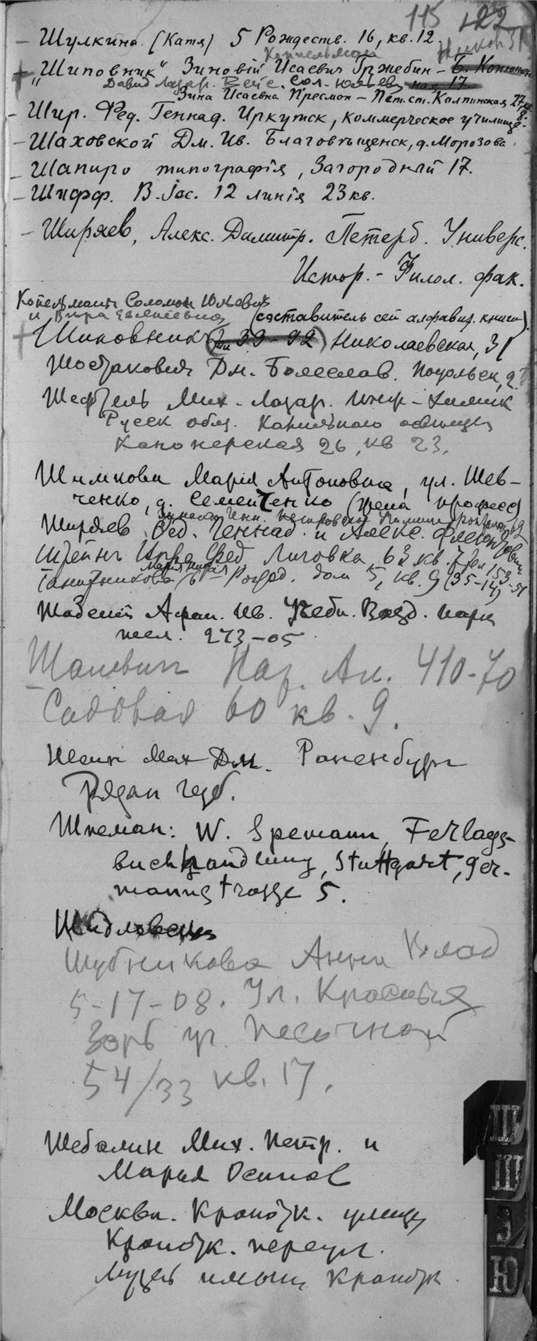 115 122
– Шулкина (Катя) 5 Рождеств. 16, кв. 12
Копельмана
+ „Шиповник" Зиновій Исаевич Гржебин –
Давид Лазар. Вейс. Сол. Юльев.
Зина Исаевна Пресмон – Пет. ст. Колпинская 27
– Шир. Фед. Геннад. Иркутск, Коммерческое училище
– Шаховской Дм. Ив. Благовѣщенск, д. Морозова.
– Шапиро типографія, Загородный 17.
– Шифф. В. Iос. 12 линія 23 кв.
– Ширяев, Алекс. Димитр. Петерб. Универс.
Истор. – Филол. фак.
Копельман Соломон Юльевич
и Вера Евгеньевна (составитель сей алфавит. книги)
+ Шиповник (39–92) Николаевская, 31
Шостакович Дм. Болеслав. Подольск. 9
Шефтель Мих. Лазар. инж-химик
Русск общ.
Канонерская 26, кв 23.
Шимкова Марія Антоновна, ул. Шев-
ченко, д. Семенченко (жена професс)
Ширяев Фед. Геннад. и Алекс.
Штейнъ Фед. Лиговка 63 кв. 7
Рожд. дом 5, кв. 9 (35-14)
Шабский Афан. Ив. Учебн. Возд. парк
тел. 273–05.
Лаз. Ал. 410-70
Садовая 60 кв. 9.
Шеин Мих Дм. Раненбург
Рязан губ.
Шпеман: W. Spemann, Ferlags-
buchhandlung, Stuttgart, Ger-
manngtrasse 5.
Шубникова Анна Влад
5–17–08. Ул. Красных
Зорь уг. Песочной
54/33 кв. 17.
Шебалин Мих. Петр. и
Мария Осипов
Москва. Кропотк. улица
Кропотк. переул.
Музей имени Кропотк
Ш
Щ
Э
Ю